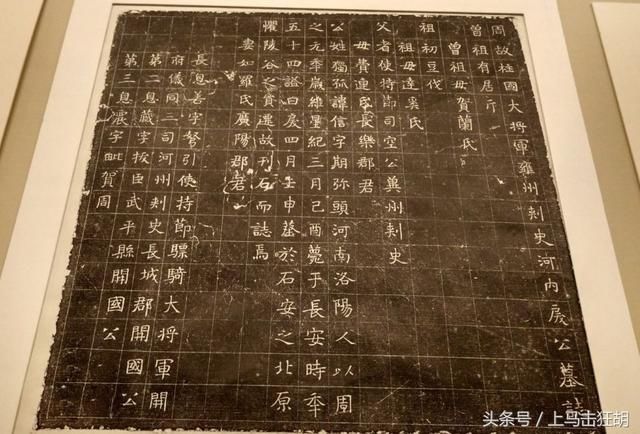 周故柱國大將軍雍州刺史河內戾公墓誌
曾祖有居斤
曾祖母賀蘭氏
祖初豆伐
祖母達奚氏
父者使持節司空公冀州刺史
母費連氏長樂郡君
公姓獨孤諱信字期弥頭河南洛陽人以周
之元年歲維星紀三月己酉薨于長安時年
五十四謚曰戾四月壬申葬於石安之北原
懼陵谷之貿遷故刊石而誌焉
妻如羅氏廣陽郡君
長息善字弩引使持節驃騎大將軍開
府儀同三司河州刺史長城郡開國公
第二息藏字拔臣武平縣開國公
第三息震字毗賀周
头条号 / 上马击狂胡